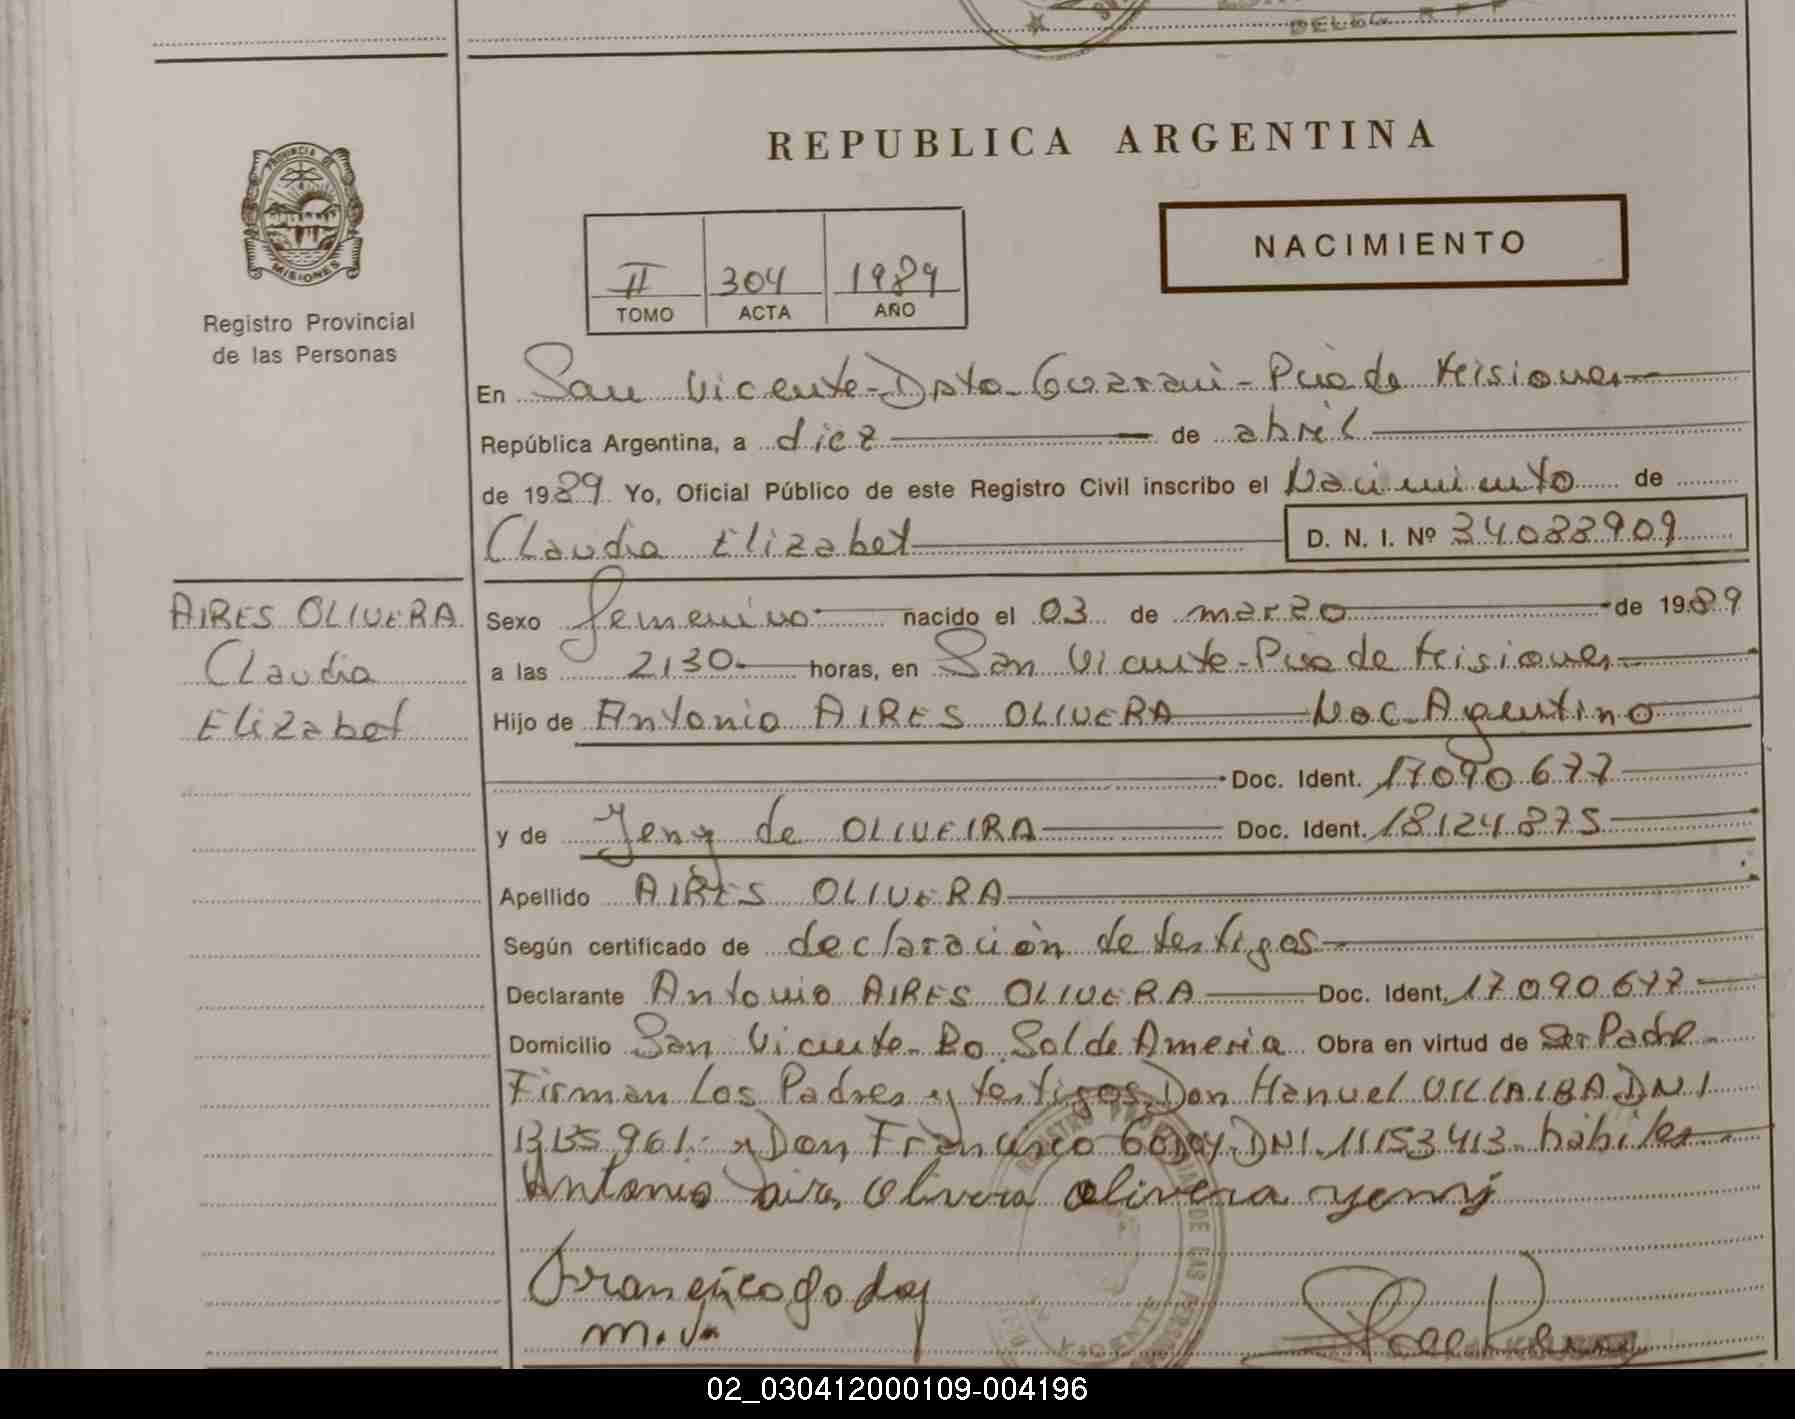 REPUBLICA ARGENTINA
NACIMIENTO
PROVINCIA DE
MISIONES
Registro Provincial
de las Personas
II 304 1989
TOMO ACTA AÑO
En San Vicente-Dpto-Guarani-Pcia de Misiones
República Argentina, a diez de abril
de 1989 Yo, Oficial Público de este Registro Civil inscribo el Nacimiento de
Claudia Elizabet D. N. I. Nº 34088909
AIRES OLIVERA
Claudia
Elizabet
Sexo femenino nacido el 03 de marzo de 1989
a las 2130 horas, en San Vicente-Pcia de Misiones
Hijo de Antonio AIRES OLIVERA Nac. Agentino
Doc. Ident. 17090677
y de Jeny de OLIVEIRA Doc. Ident. 18124875
Apellido AIRES OLIVERA
Según certificado de declaración de testigos
Declarante Antonio AIRES OLIVERA Doc. Ident. 17090677
Domicilio San Vicente-Bo Sol de America Obra en virtud de Ser Padre
Firman Los Padres y testigos Don Manuel VILLALBA DNI
y Don Francisco Godoy-DNI. 11153413 habiles
Antonio Olivera olivera yenny
Francisco godoy
m.v.
02_030412000109-004196